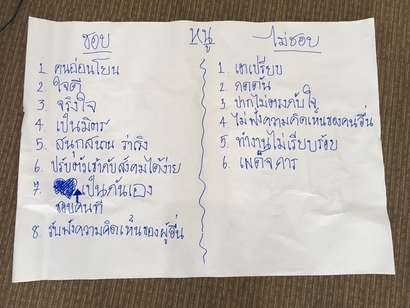 หนู
ชอบ
1. คนอ่อนโยน
2. ใจดี
3. จริงใจ
4. เป็นมิตร
5. สนุกสนาน ร่าเริง
6. ปรับตัวเข้ากับสังคมได้ง่าย
7. เป็นกันเอง
ชอบคนที่
8. รับฟังความคิดเห็นของผู้อื่น
ไม่ชอบ
1. เอาเปรียบ
2. กดดัน
3. ปากไม่ตรงกับใจ
4. ไม่ฟังความคิดเห็นของคนอื่น
5. ทำงานไม่เรียบร้อย
6. เผด็จการ